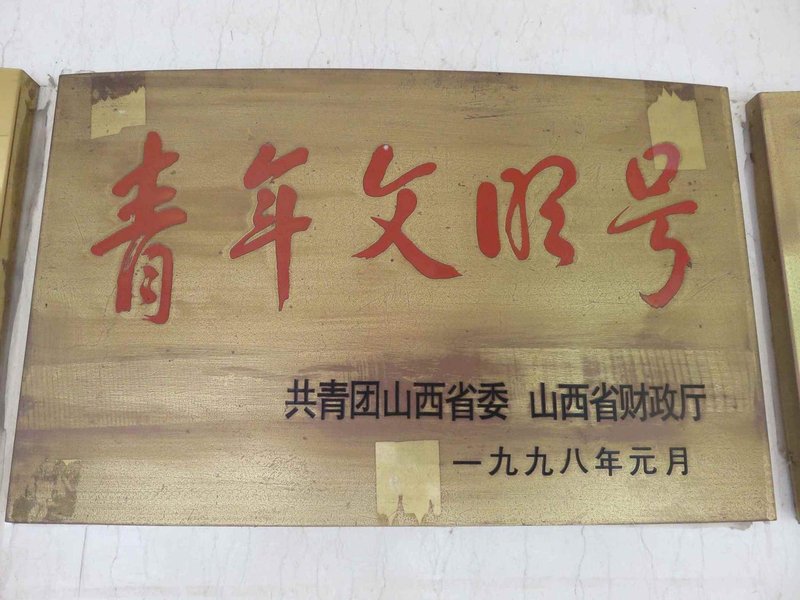 青年文明号
共青团山西省委 山西省财政厅
一九九八年元月